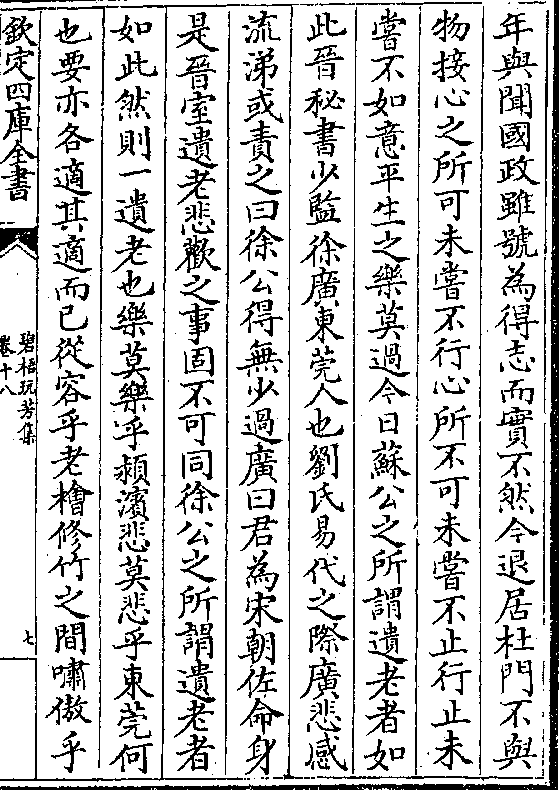 年與聞國政雖號為得志而實不然今退居杜門不與
物接心之所可未嘗不行心所不可未嘗不止行止未
嘗不如意平生之樂莫過今日蘇公之所謂遺老者如
此晉秘書少監徐廣東莞人也劉氏易代之際廣悲感
流涕或責之曰徐公得無少過廣曰君為宋朝佐命身
是晉室遺老悲歡之事固不可同徐公之所謂遺老者
如此然則一遺老也樂莫樂乎潁濱悲莫悲乎東莞何
也要亦各適其適而已從容乎老檜修竹之間嘯傲乎
欽定四庫全書
碧梧玩芳集
卷十八
七